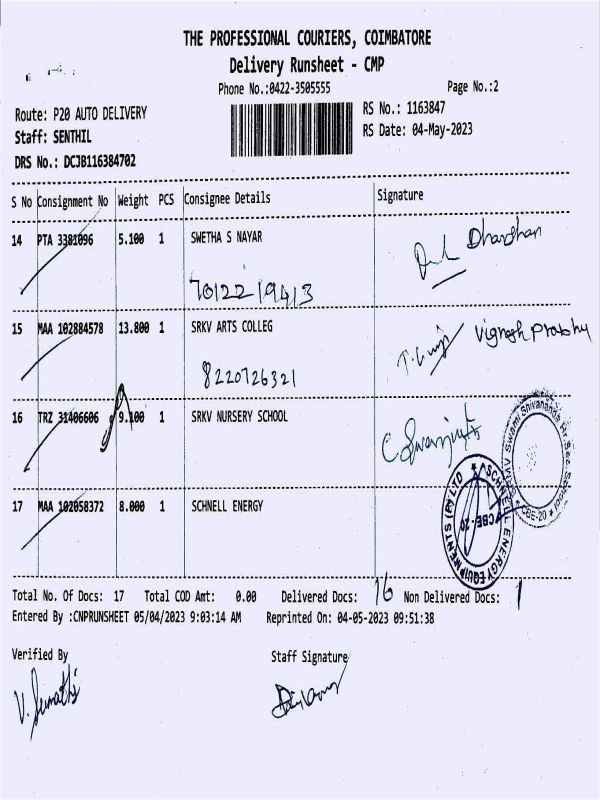 THE PROFESSIONAL COURIERS, COIMBATORE
Delivery Runsheet - CMP
Phone No.:0422-3505555 Page No.:2
Route: P20 AUTO DELIVERY RS No.: 1163847
Staff: SENTHIL RS Date: 04-May-2023
DRS No.: DCJB116384702
S No Consignment No Weight PCS Consignee Details Signature
14 PTA 3381096 5.100 1 SWETHA S NAYAR Dhardhan
7012219413
15 MAA 102884578 13.800 1 SRKV ARTS COLLEG Vignesh Prabhu
8220726321
16 TRZ 31406606 9.100 1 SRKV NURSERY SCHOOL
17 MAA 102058372 8.000 1 SCHNELL ENERGY
SCHNELL ENERGY EQUIPMENTS (P) LTD
CBE-20
Swami Shivananda Hr. Sec. School
CBE-20
Total No. Of Docs: 17 Total COD Amt: 0.00 Delivered Docs: 16 Non Delivered Docs: 1
Entered By :CNPRUNSHEET 05/04/2023 9:03:14 AM Reprinted On: 04-05-2023 09:51:38
Verified By Staff Signature